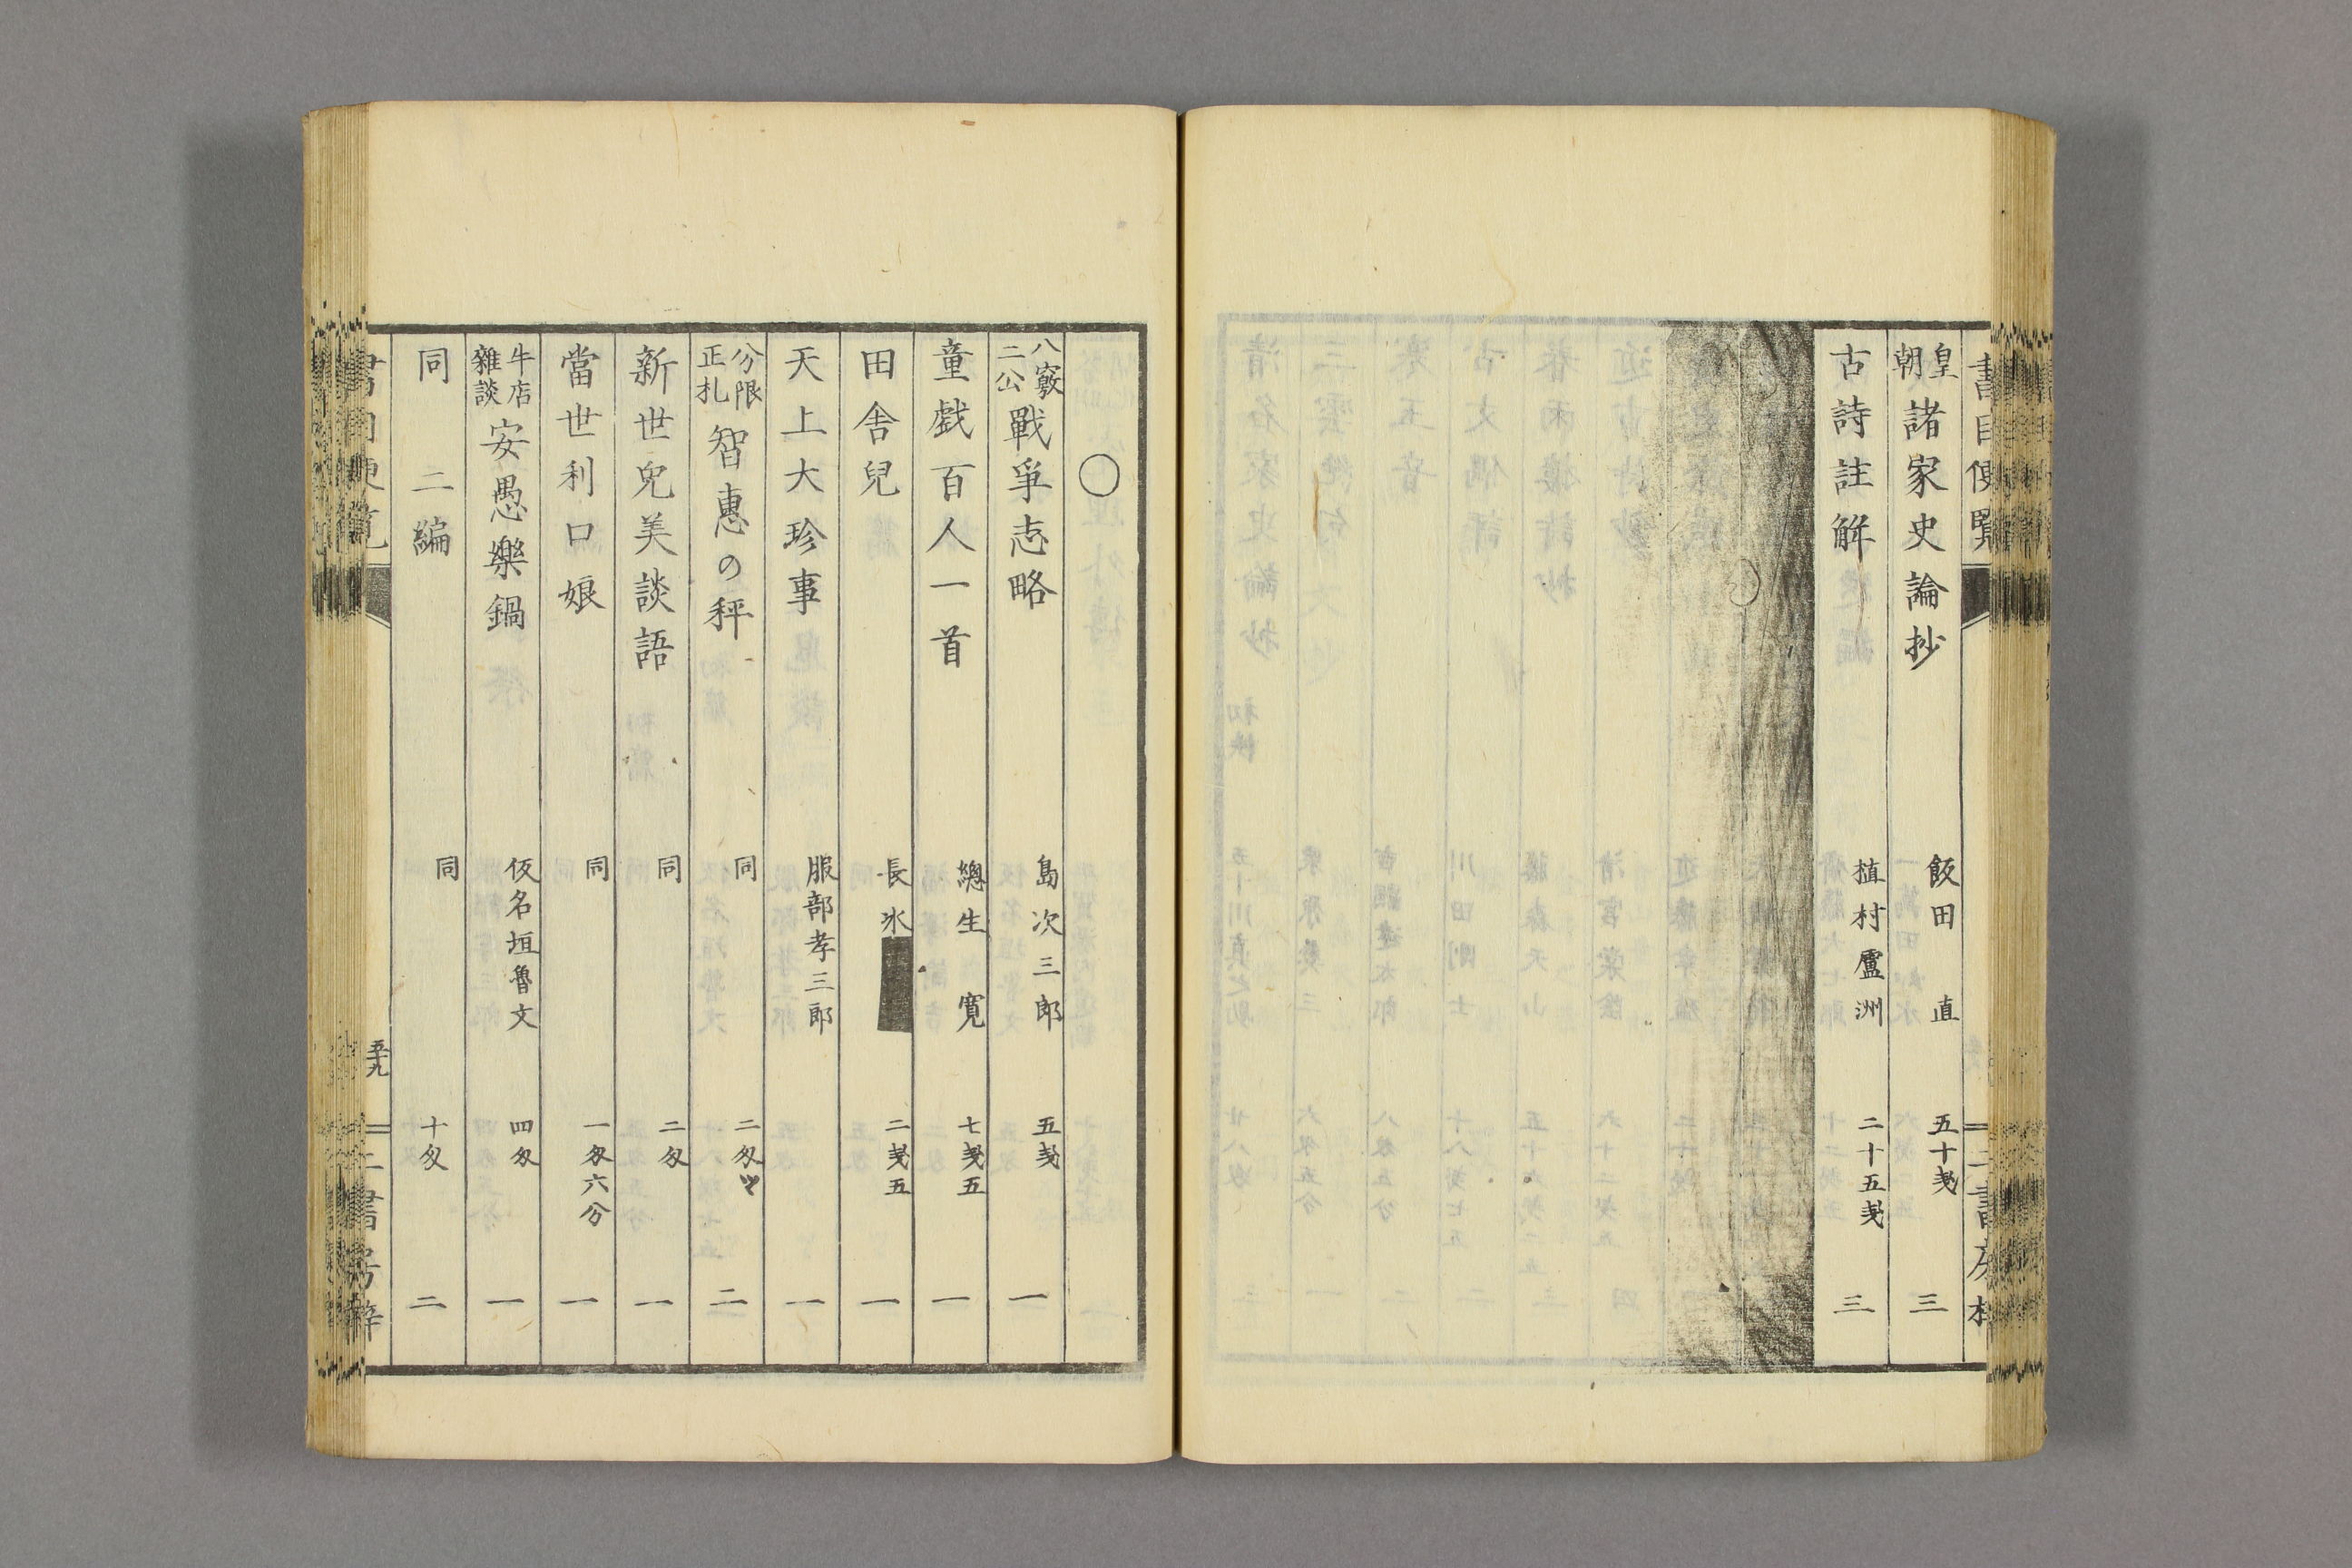 書目便覧
皇朝 諸家史論抄 飯田直 五十戔 三
古詩註解 植村盧洲 二十五戔 三
〇
八竅二公 戰爭志略 島次三郎 五戔 一
童戯百人一首 總生寛 七戔五 一
田舎兒 長氷 二戔五 一
天上大珍事 服部孝三郎 一
分限正札 智惠の秤 同 二匁ツヽ 二
新世兒美談語 同 二匁 一
當世利口娘 同 一匁六分 一
牛店雜談 安愚樂鍋 仮名垣魯文 四匁 一
同 二編 同 十匁 二
書目便覧 五十九 二書房梓